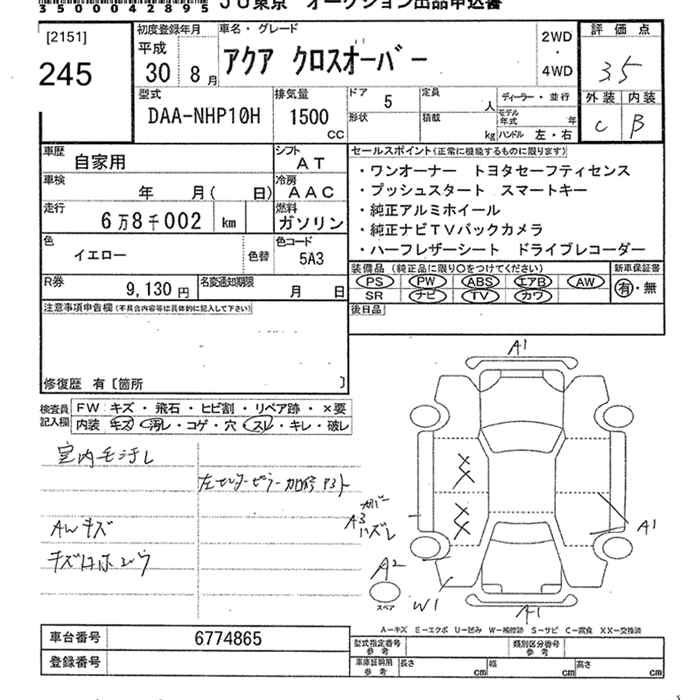 35000042895 JU東京 オークション出品申込書
[2151]
245
初度登録年月
平成
30 8 月
車名・グレード
アクア クロスオーバー
2WD
・
4WD
評価点
3.5
外装 内装
C B
型式
DAA-NHP10H
排気量
1500
CC
ドア 5
形状
定員 人
積載 kg
ディーラー・並行
モデル年式 年
ハンドル 左・右
車歴 自家用
シフト AT
車検 年 月( 日)
冷房 AAC
走行 6万8千002 km
燃料 ガソリン
色 イエロー
色替
色コード 5A3
R券 9,130円
名変通知期限 月 日
セールスポイント(正常に機能するものに限ります)
・ワンオーナー トヨタセーフティセンス
・プッシュスタート スマートキー
・純正アルミホイール
・純正ナビTVバックカメラ
・ハーフレザーシート ドライブレコーダー
装備品(純正品に限り○をつけてください)
PS PW ABS エアB AW
SR ナビ TV カワ
新車保証書
有・無
後日品
注意事項申告欄(不具合内容等は具体的に記入して下さい)
修復歴 有〔箇所 〕
検査員記入欄
FW キズ・飛石・ヒビ割・リペア跡・×要
内装 キズ・汚レ・コゲ・穴・スレ・キレ・破レ
室内モヨゴレ
左センターピラー加修
AWキズ
A1
カバー
A3 ハズレ
A2
スペア
W1
A1
A1
A―キズ E―エクボ U―凹み W―補修跡 S―サビ C―腐食 XX―交換済
車台番号 6774865
登録番号
型式指定番号 参考
類別区分番号 参考
車庫証明用 参考
長さ cm
幅 cm
高さ cm